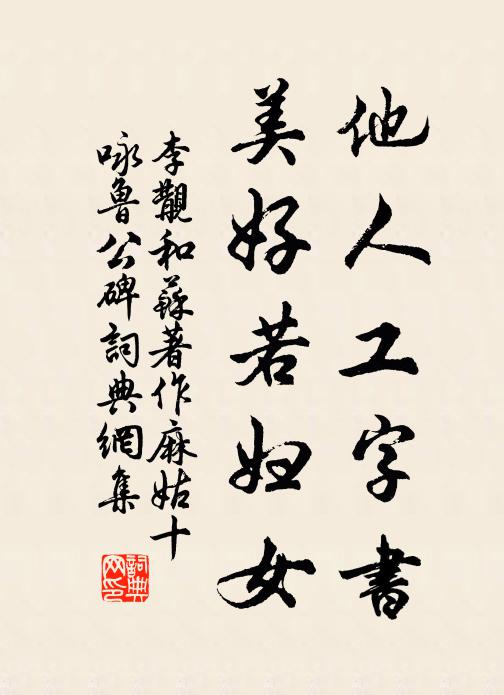 他人工字書
美好若妇女
李觀和蘇著作麻姑十
咏魯公碑詞典網集
詞典网印